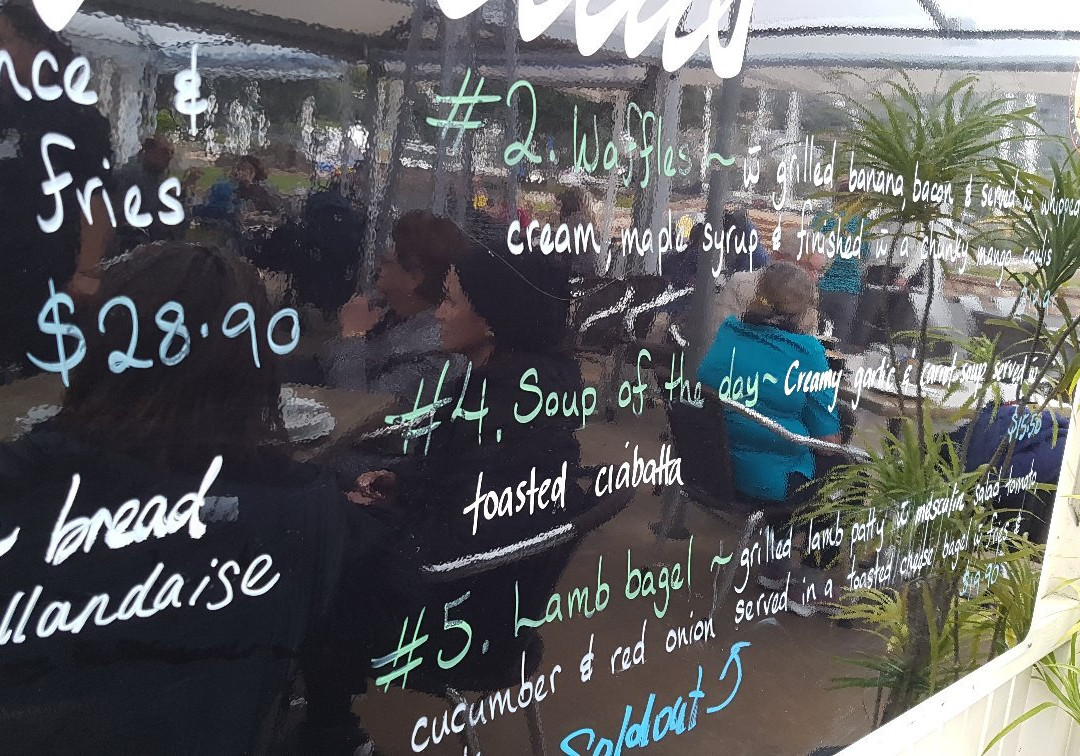 nce &
fries
$28.90
bread
llandaise
#2. Waffles ~ w̄ grilled banana, bacon, & served w̄ whipped
cream, maple syrup & finished w̄ a chunky mango coulis
#4. Soup of the day ~ Creamy garlic & carrot soup served w̄
$15.50
toasted ciabatta
#5. Lamb bagel ~ grilled lamb patty w̄ mesculin salad tomato
cucumber & red onion served in a toasted cheese bagel w̄ fries &
$19.90
Soldout